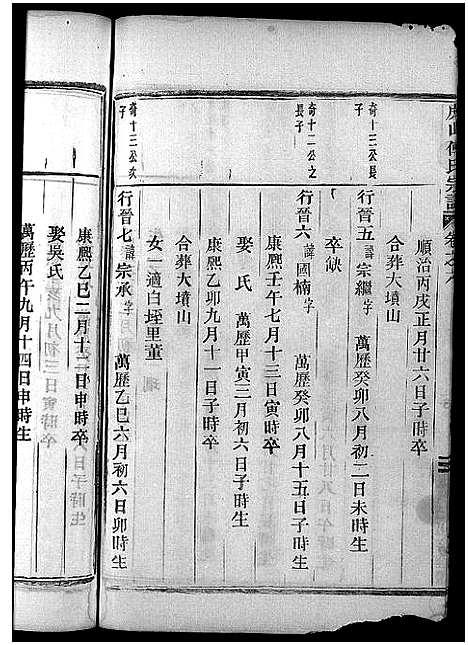 氏宗譜
順治丙戌正月廿六日子時卒
合葬大墳山
奇十三公長子
行晉五 諱宗繼字 萬歷癸卯八月初二日未時生
卒缺
奇十二公之長子
行晉六 諱國楠字 萬歷癸卯八月十五日子時生
康熙壬午七月十三日寅時卒
娶 氏 萬歷甲寅三月初六日子時生
康熙乙卯九月十一日子時卒
合葬大墳山
女一適白埕里董
奇十三公次子
行晉七 諱宗承字 萬歷乙巳六月初六日卯時生
康熙乙巳二月十一日申時卒
娶吳氏
萬歷丙午九月十四日申時生